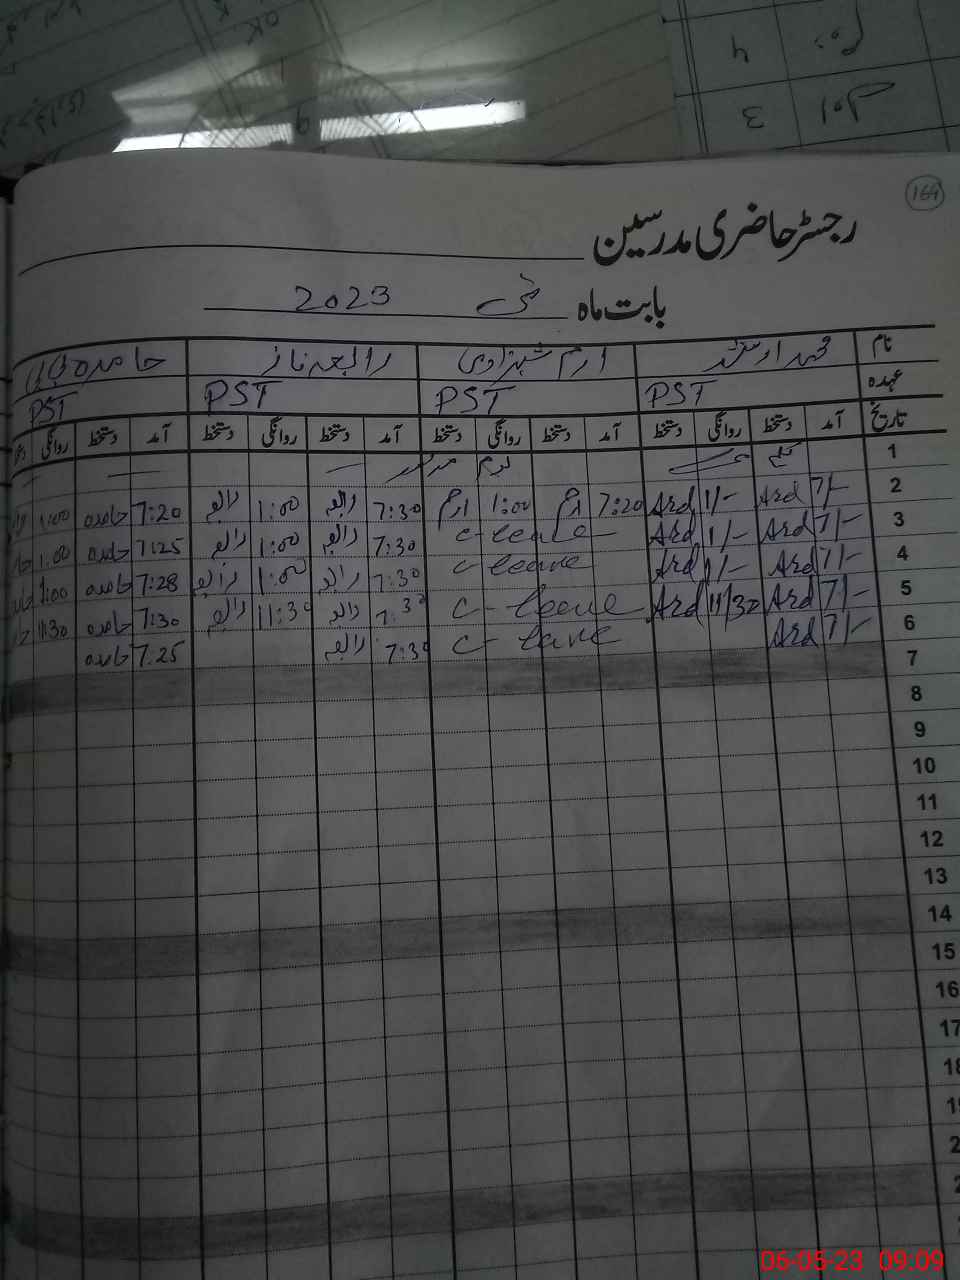 164
رجسٹر حاضری مدرسین
بابت ماہ مئی 2023
نام محمد ارشد ارم شہزادی رابعہ ناز حامدہ
عہدہ PST PST PST PST
تاریخ آمد دستخط روانگی دستخط آمد دستخط روانگی دستخط آمد دستخط روانگی دستخط آمد دستخط روانگی
1 یوم مزدور
2 7/- Ard 1/- Ard 7:20 ارم 1:00 ارم 7:30 رابعہ 1:00 رابعہ 7:20 حامدہ 1:00
3 7/- Ard 1/- Ard C-leave 7:30 رابعہ 1:00 رابعہ 7:25 حامدہ 1:00
4 7/- Ard 1/- Ard C-leave 7:30 رابعہ 1:00 رابعہ 7:28 حامدہ 1:00
5 7/- Ard 11/30 Ard C-leave 7:30 رابعہ 11:30 رابعہ 7:30 حامدہ 11:30
6 7/- Ard C-leave 7:30 رابعہ 7:25 حامدہ
7
8
9
10
11
12
13
14
15
16
17
06-05-23 09:09